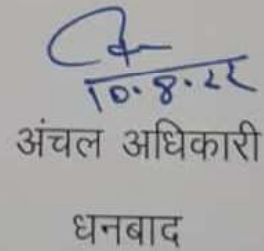 10.8.22
अंचल अधिकारी
धनबाद